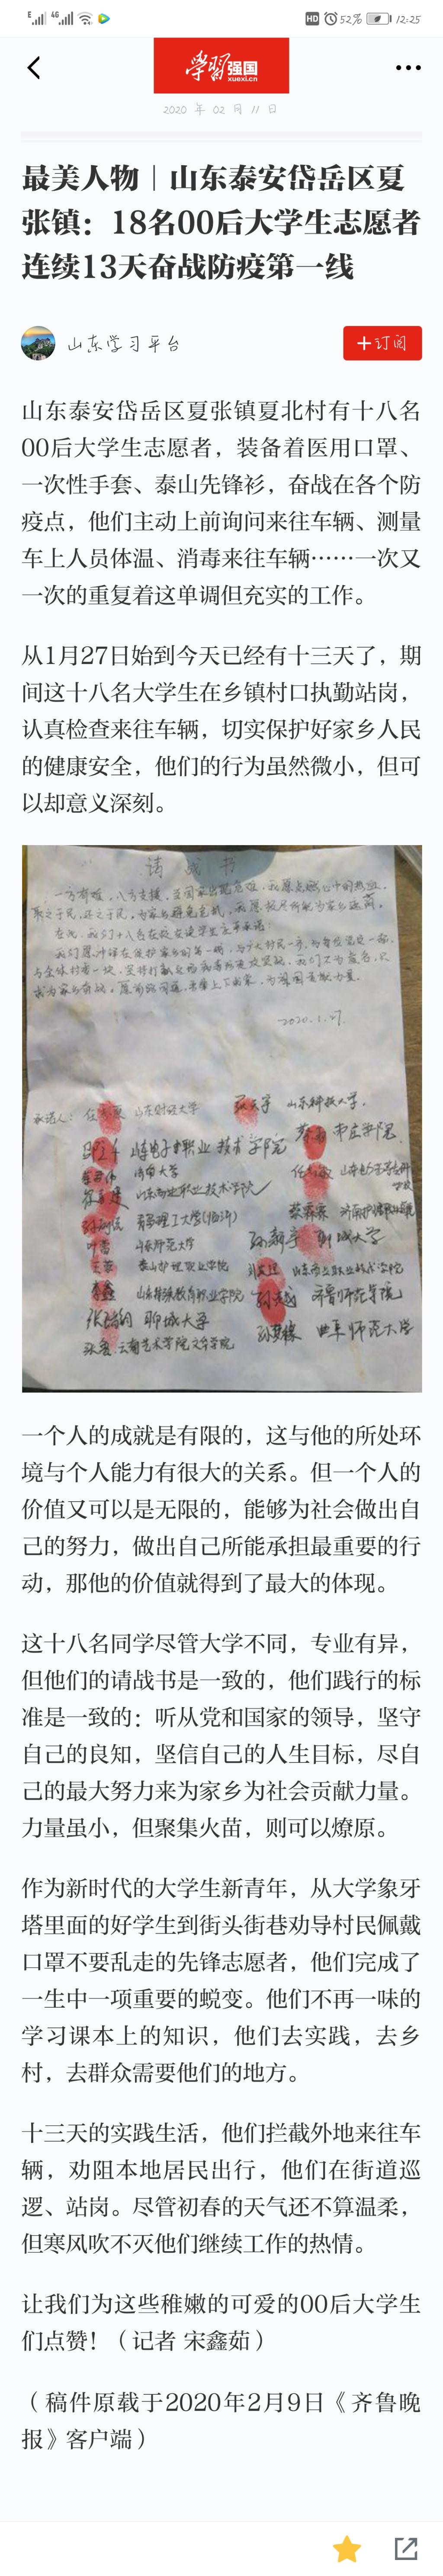 HD 52% 12:25
学习强国
xuexi.cn
2020 年 02 月 11 日
最美人物｜山东泰安岱岳区夏
张镇：18名00后大学生志愿者
连续13天奋战防疫第一线
山东学习平台
+订阅
山东泰安岱岳区夏张镇夏北村有十八名
00后大学生志愿者，装备着医用口罩、
一次性手套、泰山先锋衫，奋战在各个防
疫点，他们主动上前询问来往车辆、测量
车上人员体温、消毒来往车辆……一次又
一次的重复着这单调但充实的工作。
从1月27日始到今天已经有十三天了，期
间这十八名大学生在乡镇村口执勤站岗，
认真检查来往车辆，切实保护好家乡人民
的健康安全，他们的行为虽然微小，但可
以却意义深刻。
请战书
2020.1.27.
承诺人：
山东财经大学
山东科技大学.
枣庄学院
济南大学
山东商业职业技术学院
青岛理工大学(临沂)
山东师范大学
聊城大学
泰山护理职业学院
山东特殊教育职业学院
齐鲁师范学院
聊城大学
曲阜师范大学
云南艺术学院文华学院
一个人的成就是有限的，这与他的所处环
境与个人能力有很大的关系。但一个人的
价值又可以是无限的，能够为社会做出自
己的努力，做出自己所能承担最重要的行
动，那他的价值就得到了最大的体现。
这十八名同学尽管大学不同，专业有异，
但他们的请战书是一致的，他们践行的标
准是一致的：听从党和国家的领导，坚守
自己的良知，坚信自己的人生目标，尽自
己的最大努力来为家乡为社会贡献力量。
力量虽小，但聚集火苗，则可以燎原。
作为新时代的大学生新青年，从大学象牙
塔里面的好学生到街头街巷劝导村民佩戴
口罩不要乱走的先锋志愿者，他们完成了
一生中一项重要的蜕变。他们不再一味的
学习课本上的知识，他们去实践，去乡
村，去群众需要他们的地方。
十三天的实践生活，他们拦截外地来往车
辆，劝阻本地居民出行，他们在街道巡
逻、站岗。尽管初春的天气还不算温柔，
但寒风吹不灭他们继续工作的热情。
让我们为这些稚嫩的可爱的00后大学生
们点赞！（记者 宋鑫茹）
（稿件原载于2020年2月9日《齐鲁晚
报》客户端）